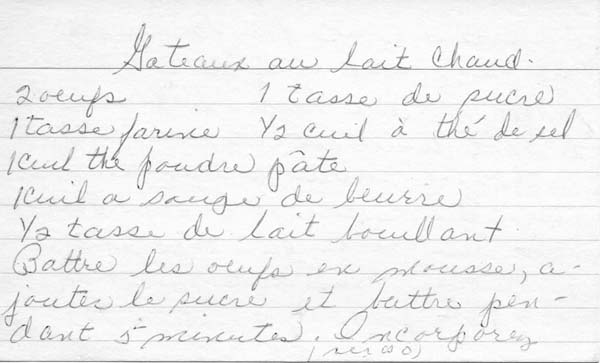 Gateaux au lait chaud.
2 oeufs 1 tasse de sucre
1 tasse farine 1/2 cuil à thé de sel
1 cuil thé poudre pâte
1 cuil a soupe de beurre
1/2 tasse de lait bouillant
Battre les oeufs en mousse, a-
joutez le sucre et battre pen-
dant 5 minutes. Incorporez